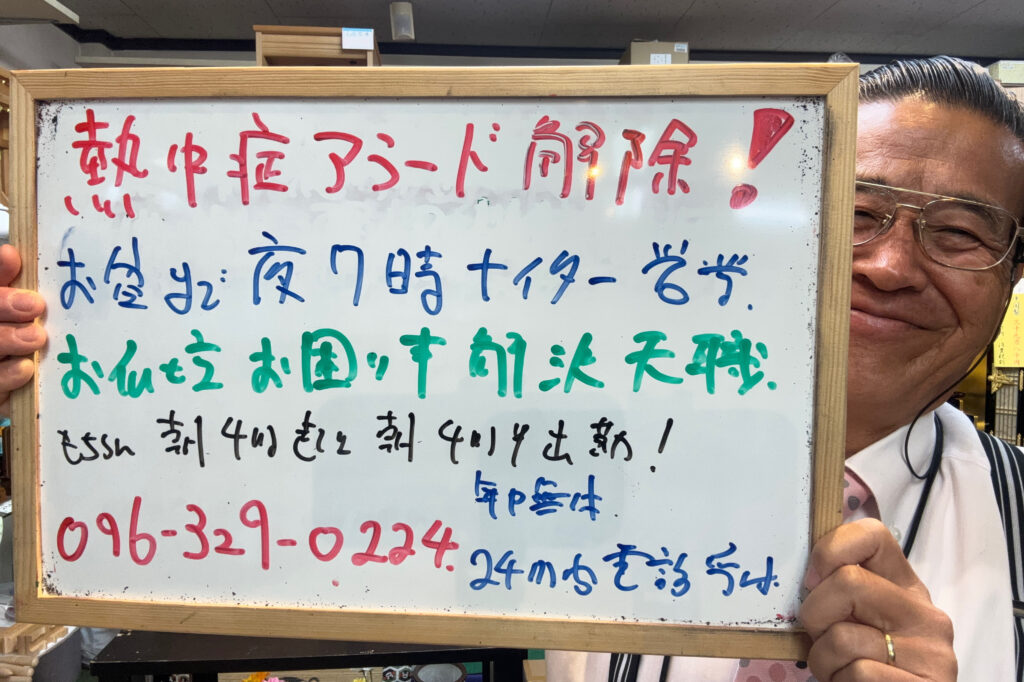 熱中症アラード解除!
お盆まで夜7時ナイター営業.
お仏壇お困り事解決天職.
もちろん朝4時起きと朝4時半出勤!
年中無休
096-329-0224.
24時間電話受付.